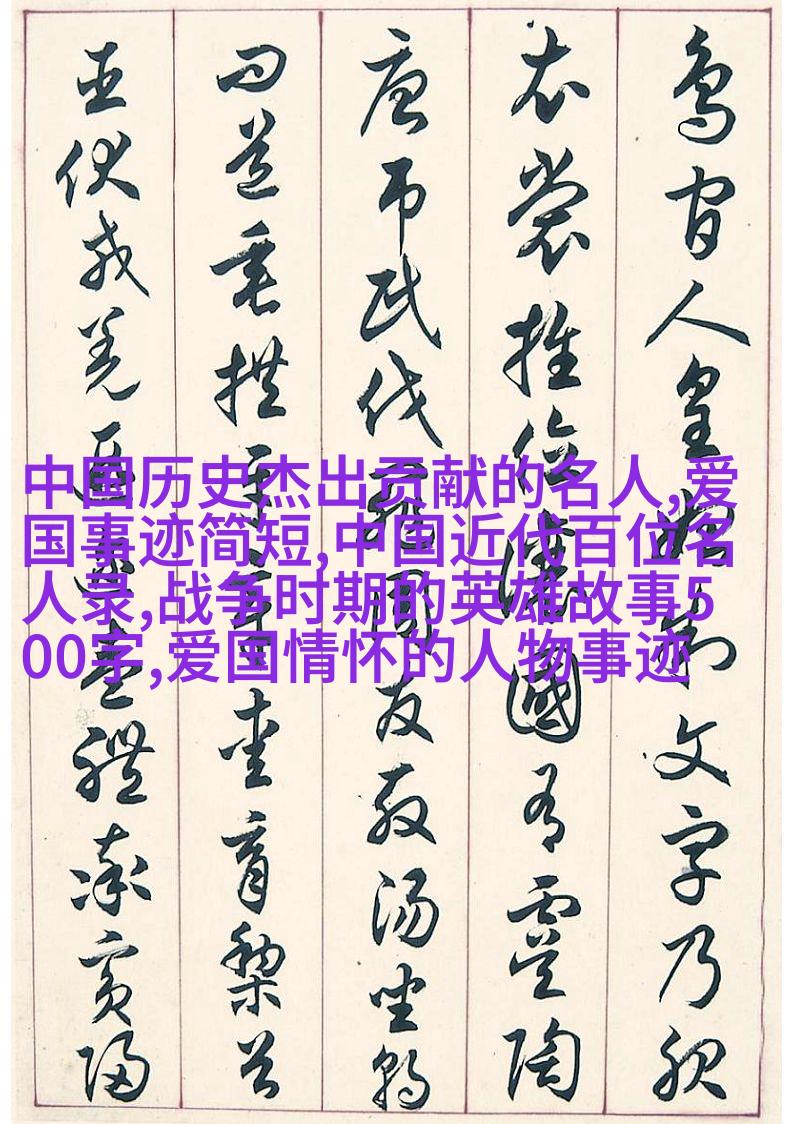 鳥官人皇始制文字乃服
衣裳推位讓國有虞陶
唐吊民伐罪周發殷湯坐朝
問道垂拱平章愛育黎首
臣伏戎羌遐邇壹體率賓歸
中国历史杰出贡献的名人,爱
国事迹简短,中国近代百位名
人录,战争时期的英雄故事5
00字,爱国情怀的人物事迹